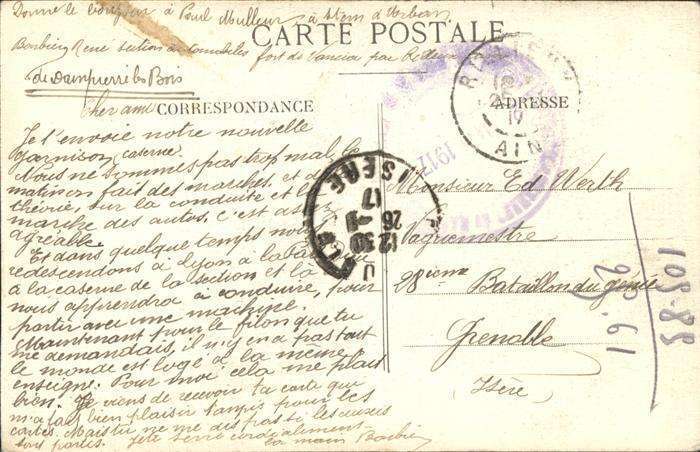 Donne le bonjour à Paul Mulleur à Stem d'Urban
CARTE POSTALE
Barbier René section automobiles fort de Vancia par Rillieux
de Dampierre les Bois
Cher ami
CORRESPONDANCE
Je t'envoie notre nouvelle
garnison, caserne.
Nous ne sommes pas trop mal, le
matin on fait des marches, et de
théorie, sur la conduite et la
marche des autos, c'est assez
agréable.
Et dans quelque temps nous
redescendons à Lyon à la Part
à la caserne de la section et là
nous apprendra à conduire, pour
partir avec une machine.
Maintenant pour le filon que tu
me demandais, il n'y en a pas tout
le monde est logé à la même
enseigne. Pour moi cela me plait
bien. Je viens de recevoir ta carte que
m'a fait bien plaisir tampis pour les
cartes. Mais tu ne me dis pas si les autres
sont partis. Je te serre cordialement
la main Barbier
ADRESSE
Monsieur Ed Werth
Vaguemestre
28ieme Bataillon du génie
Grenoble
Isère
AIN
ISERE
12 30
26 -9
17
1917
108-88
29.61